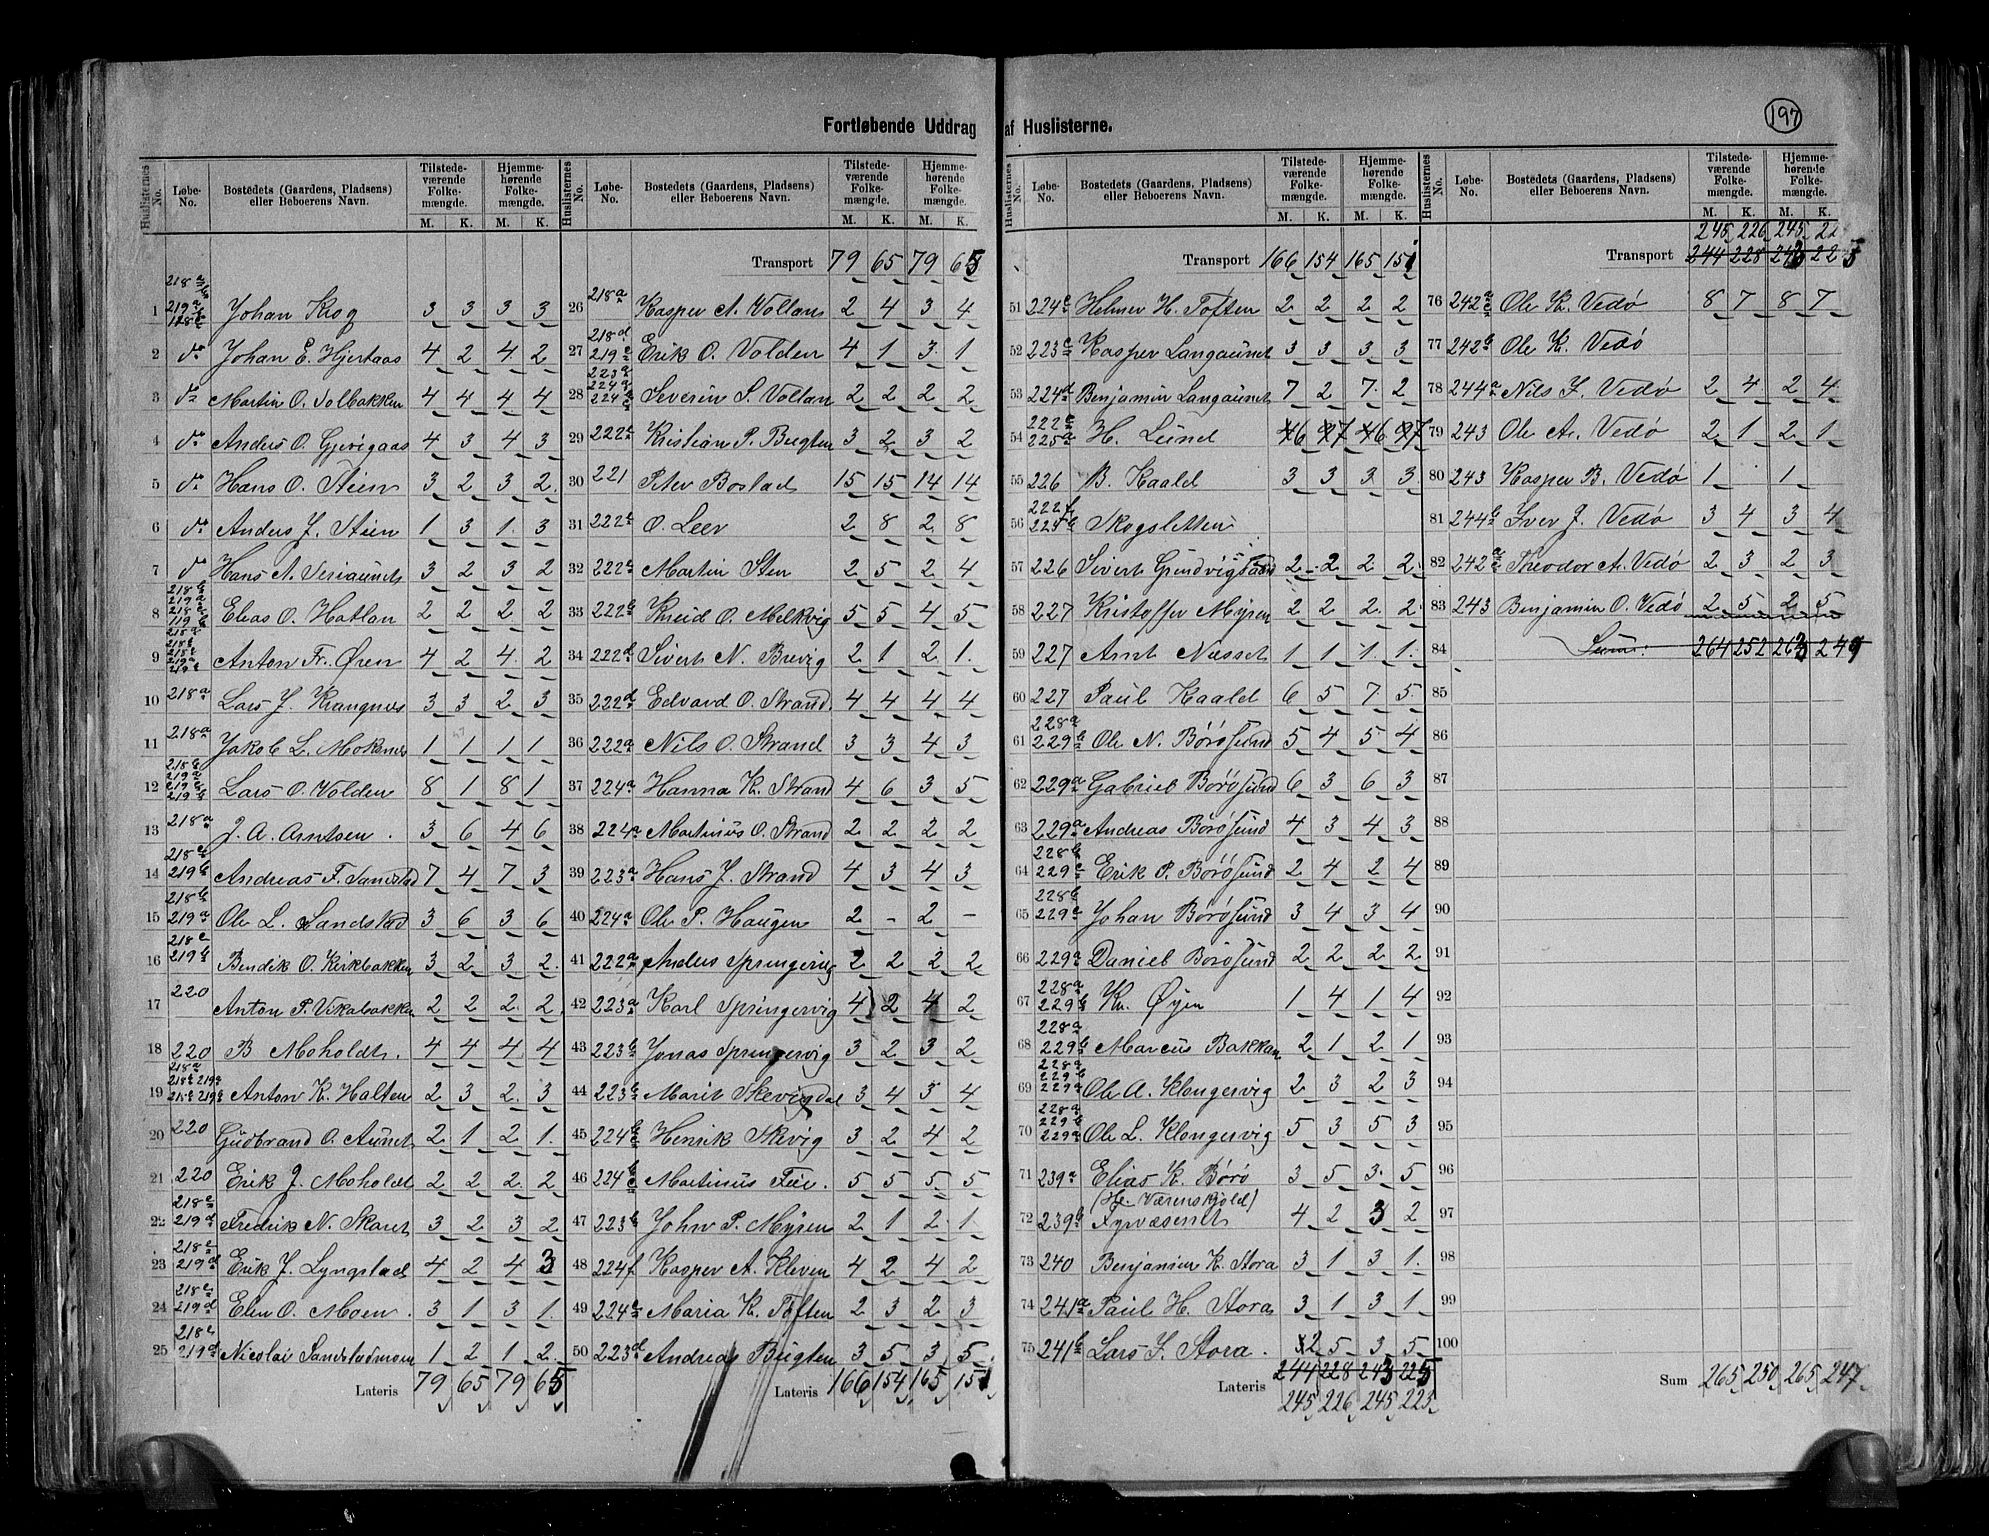 197
Fortløbende Uddrag af Huslisterne.
Huslisternes No. Løbe-No. Bostedets (Gaardens, Pladsens) eller Beboerens Navn. Tilstedeværende Folkemængde. M. K. Hjemmehørende Folkemængde. M. K.
Transport 79 65 79 65
Transport 166 154 165 151
245 226 245 22
Transport 244 228 243 225
1 Johan Krog 3 3 3 3
2 do Johan E. Hjertaas 4 2 4 2
3 do Martin O. Solbakken 4 4 4 4
4 do Anders O. Gjevigaas 4 3 4 3
5 do Hans O. Stien 3 2 3 2
6 do Anders J. Stien 1 3 1 3
7 do Hans A. 3 2 3 2
8 Elias O. Hatlan 2 2 2 2
9 Anton Fr. Øren 4 2 4 2
10 218a Lars J. Krangnes 3 3 2 3
11 218a Jakob L. 1 1 1 1
12 Lars O. Volden 8 1 8 1
13 218a J. A. Arntsen 3 6 4 6
14 219b Andreas F. Sandstad 7 4 7 3
15 218b 219a Ole L. Sandstad 3 6 3 6
16 218c 219b Bendik O. Kirkbakken 3 2 3 2
17 220 Anton P. Vikabakken 2 2 2 2
18 220 B Moholdt. 4 4 4 4
19 Anton K. Halten 2 3 2 3
20 220 Gudbrand O. Aunet 2 1 2 1
21 220 Erik J. Moholdt 2 2 2 2
22 218c 219d Fredrik N. Skaret 3 2 3 2
23 218c 219d Erik J. Lyngstad 4 2 4 3
24 218c 219d Elen O. Moen 3 1 3 1
25 218c 219d Nicolai Sandstadmoen 1 2 1 2
Lateris 79 65 79 65
26 218a Kasper A. Vollan 2 4 3 4
27 218d 219c Erik O. Volden 4 1 3 1
28 223a Severin S. Vollan 2 2 2 2
29 222c Kristian P. Bugten 3 2 3 2
30 221 Peter Bostad 15 15 14 14
31 O. Leer 2 8 2 8
32 222a Martin Sten 2 5 2 4
33 222b O. Melkvig 5 5 4 5
34 222d Sivert N. Brevig 2 1 2 1
35 222d Edvard O. Strand 4 4 4 4
36 222a Nils O. Strand 3 3 4 3
37 224a Hanna K. Strand 4 6 3 5
38 224a Martinus O. Strand 2 2 2 2
39 223a Hans J. Strand 4 3 4 3
40 224a Ole P. Haugen 2 - 2 -
41 222a Anders Springervig 2 2 2 2
42 223a Karl Springervig 4 2 4 2
43 223b Jonas Springervig 3 2 3 2
44 223b Marit Skevigdal 3 4 3 4
45 224b Henrik Skevig 3 2 4 2
46 224 Martinus 5 5 5 5
47 223b John P. Myren 2 1 2 1
48 224f Kasper A. Kleven 4 2 4 2
49 224c Maria K. Toften 2 3 2 3
50 223d Andreas Bugten 3 5 3 5
Lateris 166 154 165 151
51 224c Helmer H. Toften 2 2 2 2
52 223c Kasper Langaunet 3 3 3 3
53 224d Benjamin Langaunet 7 2 7 2
54 222e 225a H. Lund 6 7 6 7
55 226 B. Kaald 3 3 3 3
56 222f Skogsletten
57 226 Sivert Gundvigsaand 2 2 2 2
58 227 Kristoffer Myren 2 2 2 2
59 227 Arnt Næsset 1 1 1 1
60 227 Paul Kaald 6 5 7 5
61 228a 229b Ole N. Børøsund 5 4 5 4
62 229a Gabriel Børøsund 6 3 6 3
63 229a Andreas Børøsund 4 3 4 3
64 228b 229c Erik P. Børøsund 2 4 2 4
65 228b 229c Johan Børøsund 3 4 3 4
66 229a Daniel Børøsund 2 2 2 2
67 228a 229b Kn. Øyen 1 4 1 4
68 228a 229b Marcus Bakkan 2 1 2 1
69 228a 229b 229a Ole A. Klengervig 2 3 2 3
70 228a 229b 229a Ole L. Klengervig 5 3 5 3
71 239a Elias K. Børø 3 5 3 5
(H. Værenskjold)
72 239b Fyrvæsenet 4 2 3 2
73 240 Benjamin K. Stora 3 1 3 1
74 241a Paul H. Stora 3 1 3 1
75 241b Lars J. Stora 2 5 3 5
Lateris 244 228 243 225
245 226 245 223
76 242a Ole K. Vedø 8 7 8 7
77 242b Ole K. Vedø
78 244a Nils J. Vedø 2 4 2 4
79 243 Ole A. Vedø 2 1 2 1
80 243 Kasper B. Vedø 1 1
81 244b Iver J. Vedø 3 4 3 4
82 242a Theodor A. Vedø 2 3 2 3
83 243 Benjamin O. Vedø 2 5 2 5
84 Sum: 264 252 263 249
85
86
87
88
89
90
91
92
93
94
95
96
97
98
99
100
Sum 265 250 265 247